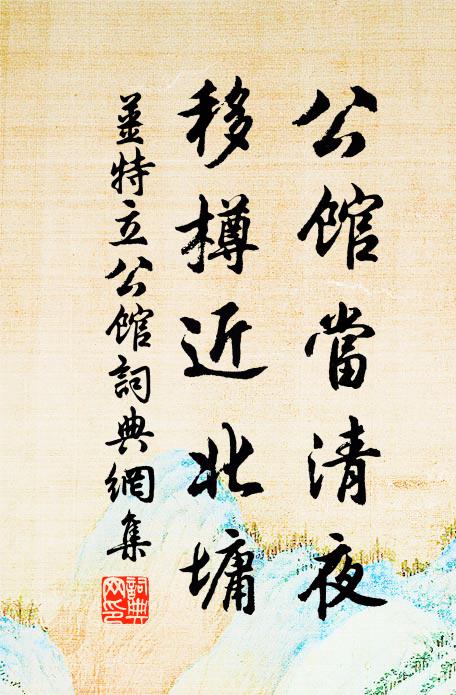 公館當清夜
移樽近北墉
姜特立公館詞典網集
詞典網印